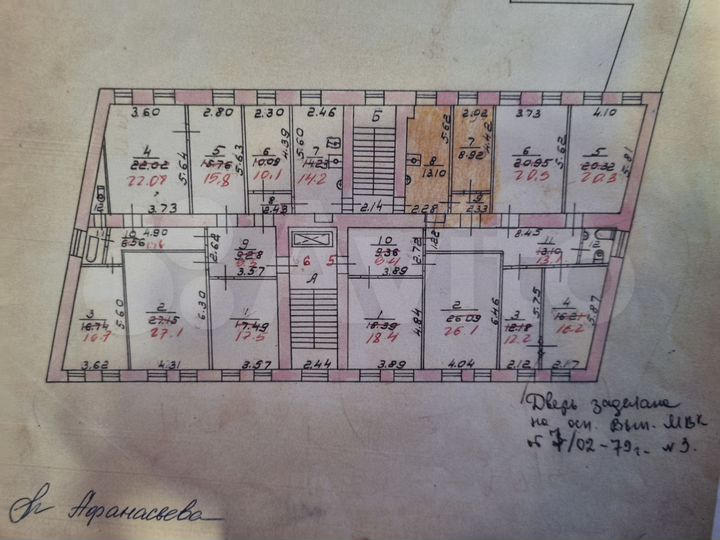 3.60 2.80 2.30 2.46 Б 5.62 2.02 3.73 4.10
4 5 6 7 7 6 5
22.02 5.64 15.76 5.63 10.09 4.39 5.60 14.23 8 4.42 8.92 20.95 5.62 20.32 5.81
22.08 15.8 10.1 14.2 13.10 20.9 20.3
3.73 8 2.43 2.14 2.28 9 2.33
11 10 4.90 2.62 9 10 2.72 1.22 8.45 11 12
6.56 9.28 6 5 9.36 13.10
3.57 А 3.89 13.1
3 5.60 2 6.30 1 1 4.84 2 6.46 3 5.75 4 5.87
16.74 27.15 17.49 18.39 26.09 12.18 16.21
16.7 27.1 17.5 18.4 26.1 12.2 16.2
3.62 4.31 3.57 2.44 3.89 4.04 2.12 2.17
Дверь заделана
на осн. Вып. МВК
№ 7/02-79г. №3.
Афанасьева